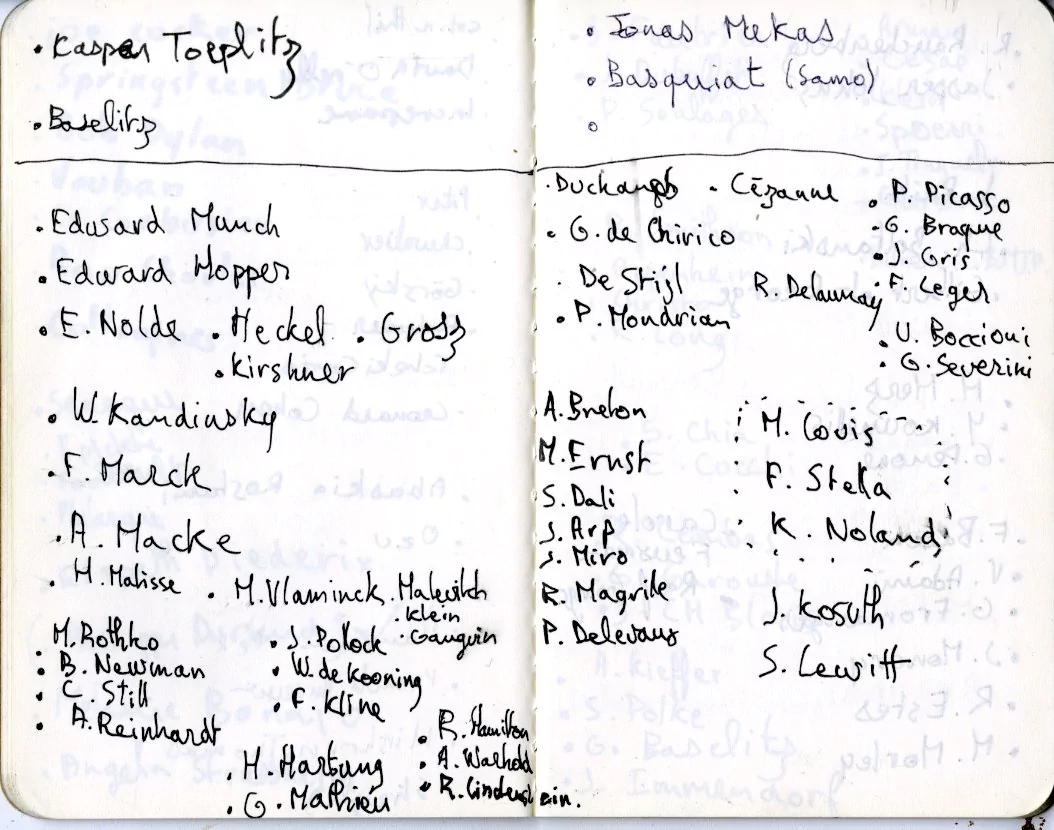 . Kasper Toeplitz
. Baselitz
. Edusard Munch
. Edward Hopper
. E. Nolde . Heckel . Grosz
. Kirshner
. W. Kandinsky
. F. Marck
. A. Macke
. H. Matisse . M. Vlaminck . Malevitch
. Klein
. M. Rothko . J. Polock . Gauguin
. B. Newman . W. de Kooning
. C. Still . F. Kline
. A. Reinhardt
. R. Hamilton
. H. Hartung . A. Warhold
. G. Mathieu . R. Lindenstein.
. Jonas Mekas
. Basquiat (Samo)
. Duchamp . Cézanne . P. Picasso
. G. de Chirico . G. Braque
. J. Gris
. De Stijl R. Delaunay . F. Leger
. P. Mondrian . U. Boccioni
. G. Severini
A. Breton M. Louis
M. Ernst F. Stella
S. Dali
J. Arp K. Noland
J. Miro
R. Magritte J. Kosuth
P. Delevaux S. Lewitt